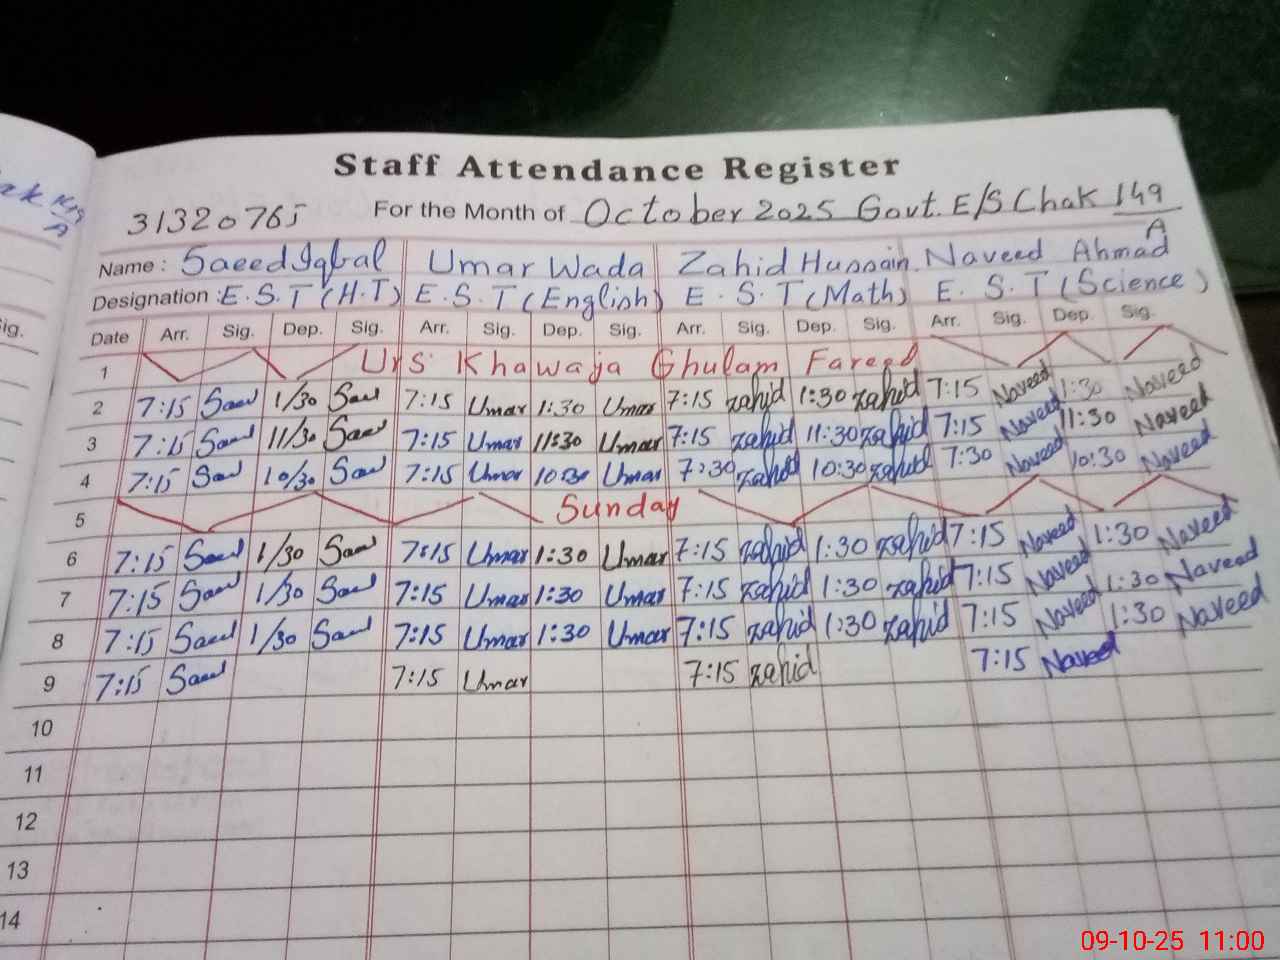 Staff Attendance Register
31320765 For the Month of October 2025 Govt. E/S Chak 149/A
Name : Saeed Iqbal Umar Wada Zahid Hussain Naveed Ahmad
Designation : E.S.T (H.T) E.S.T (English) E.S.T (Math) E.S.T (Science)
Date Arr. Sig. Dep. Sig. Arr. Sig. Dep. Sig. Arr. Sig. Dep. Sig. Arr. Sig. Dep. Sig.
1 Urs Khawaja Ghulam Fareed
2 7:15 Saeed 1/30 Saeed 7:15 Umar 1:30 Umar 7:15 zahid 1:30 zahid 7:15 Naveed 1:30 Naveed
3 7:15 Saeed 11/30 Saeed 7:15 Umar 11:30 Umar 7:15 zahid 11:30 zahid 7:15 Naveed 11:30 Naveed
4 7:15 Saeed 10/30 Saeed 7:15 Umar 10:30 Umar 7:30 zahid 10:30 zahid 7:30 Naveed 10:30 Naveed
5 Sunday
6 7:15 Saeed 1/30 Saeed 7:15 Umar 1:30 Umar 7:15 zahid 1:30 zahid 7:15 Naveed 1:30 Naveed
7 7:15 Saeed 1/30 Saeed 7:15 Umar 1:30 Umar 7:15 zahid 1:30 zahid 7:15 Naveed 1:30 Naveed
8 7:15 Saeed 1/30 Saeed 7:15 Umar 1:30 Umar 7:15 zahid 1:30 zahid 7:15 Naveed 1:30 Naveed
9 7:15 Saeed 7:15 Umar 7:15 zahid 7:15 Naveed
10
11
12
13
14
09-10-25 11:00